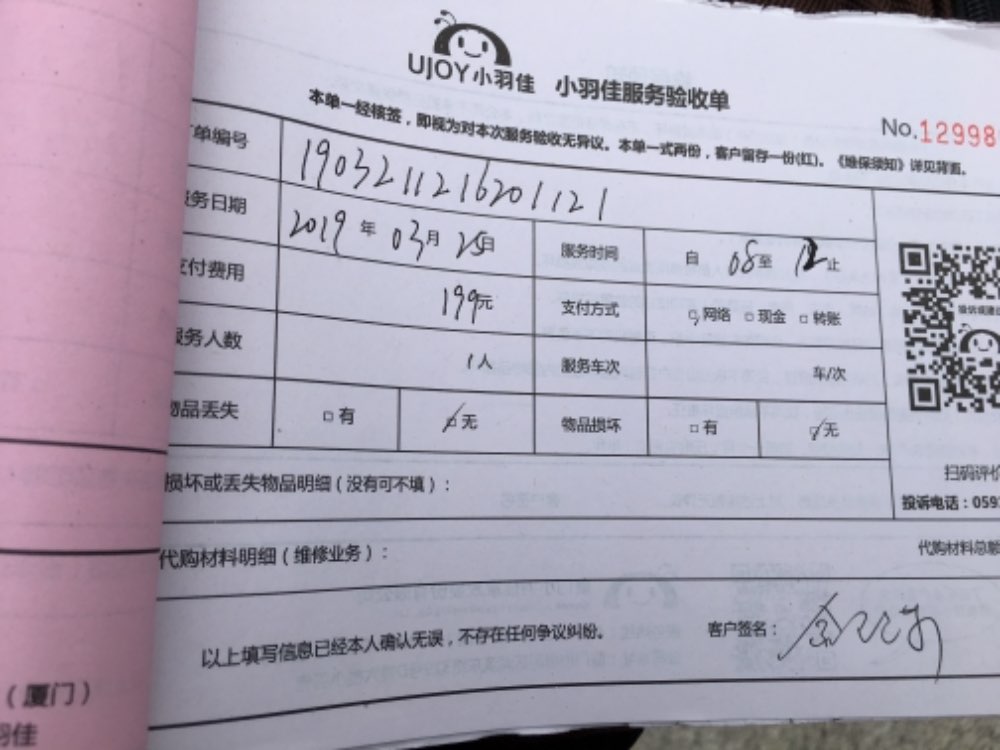 UJOY小羽佳 小羽佳服务验收单
No.12998
本单一经核签，即视为对本次服务验收无异议。本单一式两份，客户留存一份(红)。《维保须知》详见背面。
单编号 1903211216201121
务日期 2019 年 03 月 25 日 服务时间 自 08 至 12 止
付费用 199元 支付方式 □网络 □现金 □转账
服务人数 1人 服务车次 车/次
物品丢失 □有 ☑无 物品损坏 □有 ☑无
损坏或丢失物品明细（没有可不填）：
扫码评价
投诉电话：059
代购材料明细（维修业务）：
代购材料总额
以上填写信息已经本人确认无误，不存在任何争议纠纷。 客户签名：
（厦门）
羽佳